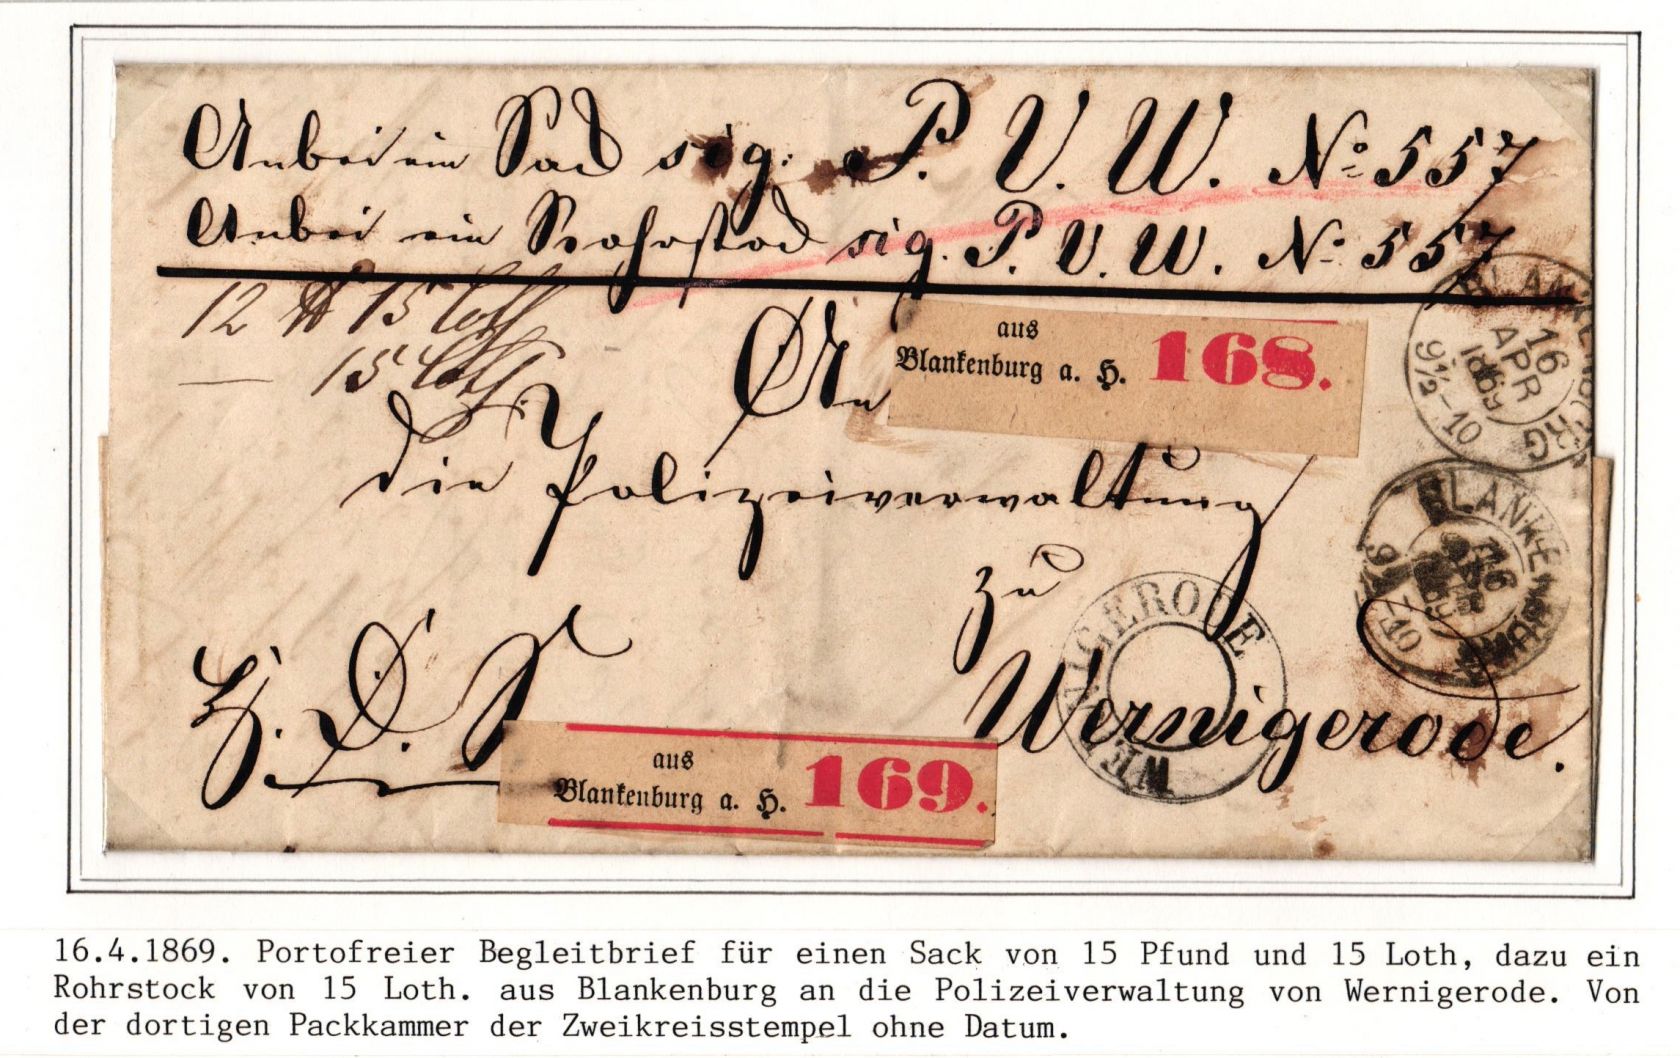 Anbei ein Sack sig: P. V. W. No 557
Anbei ein Rohrstock sig. P. V. W. No 557
12 ℔ 15 Loth
— 15 Loth
An
aus
Blankenburg a. H. 168.
BLANKENBURG
16
APR
1869
9½-10
die Polizeiverwaltung
zu
Wernigerode.
BLANKENBURG
16
APR
1869
9½-10
WERNIGERODE
H. D. S.
aus
Blankenburg a. H. 169.
16.4.1869. Portofreier Begleitbrief für einen Sack von 15 Pfund und 15 Loth, dazu ein
Rohrstock von 15 Loth. aus Blankenburg an die Polizeiverwaltung von Wernigerode. Von
der dortigen Packkammer der Zweikreisstempel ohne Datum.